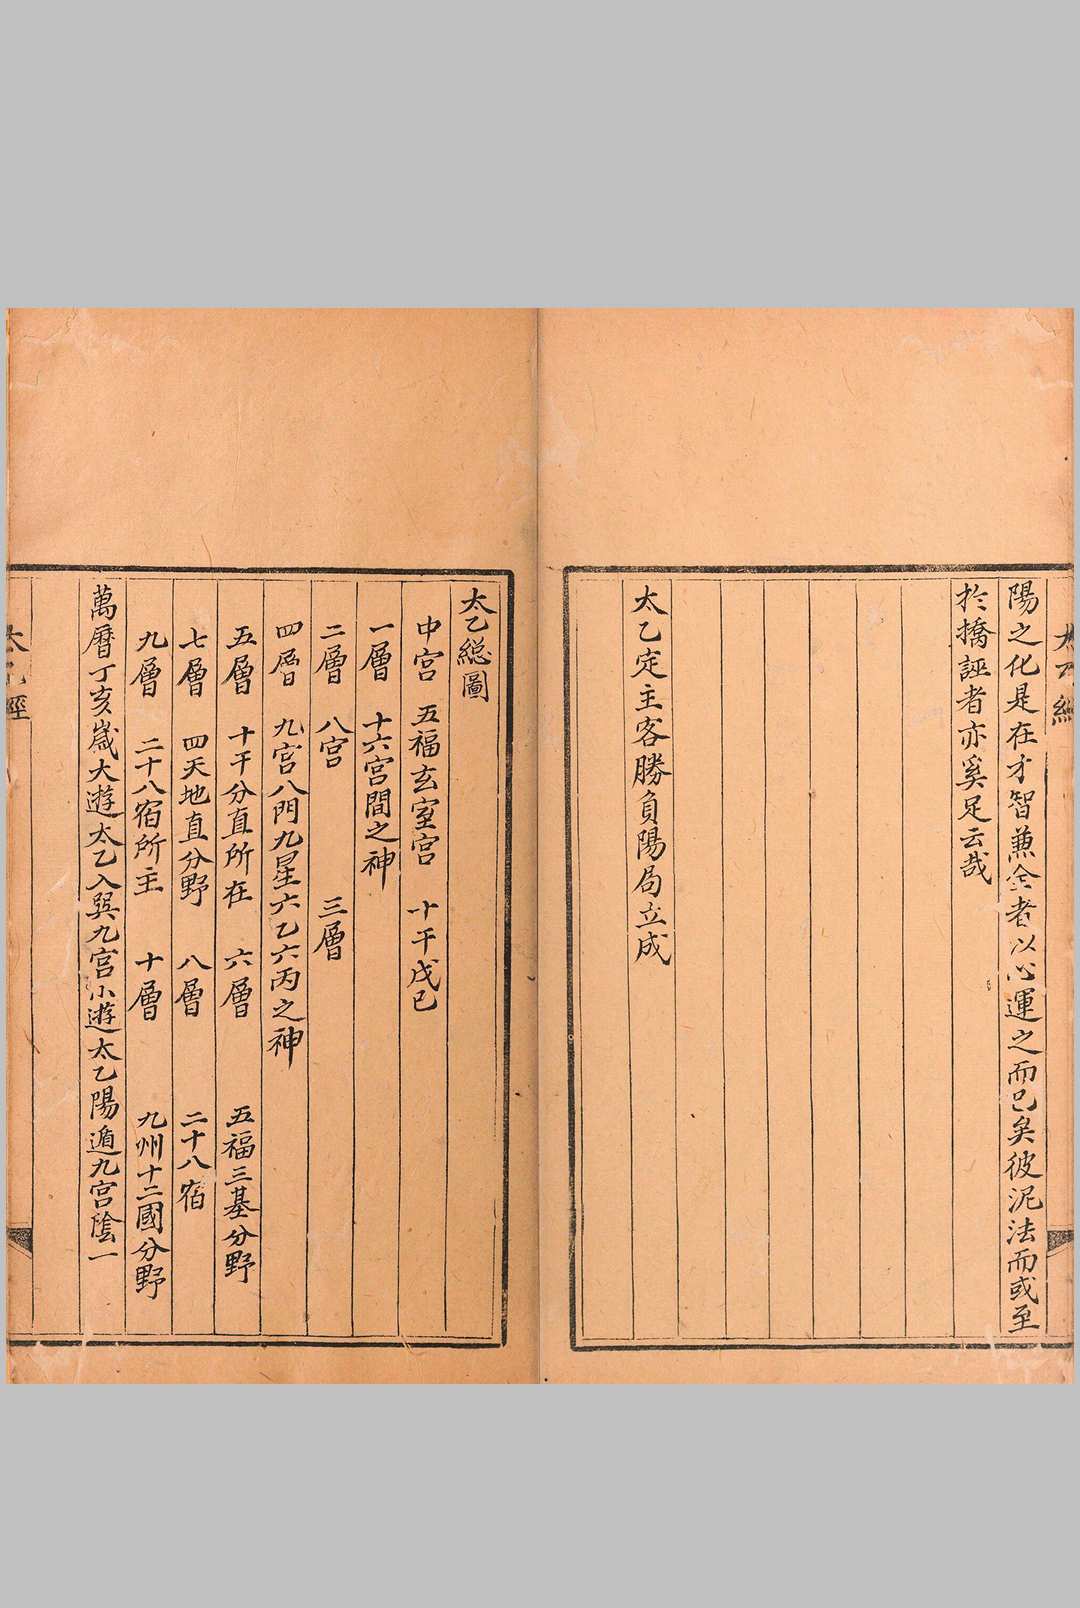 陽之化是在才智兼全者以心運之而已矣彼泥法而或至
於撟誣者亦奚足云哉
太乙定主客勝負陽局立成
太乙總圖
中宮 五福玄室宮 十干戊己
一層 十六宮間之神
二層 八宮 三層
四層 九宮八門九星六乙六丙之神
五層 十干分直所在 六層 五福三基分野
七層 四天地直分野 八層 二十八宿
九層 二十八宿所主 十層 九州十二國分野
萬曆丁亥歲大遊太乙入巽九宮小遊太乙陽遁九宮陰一